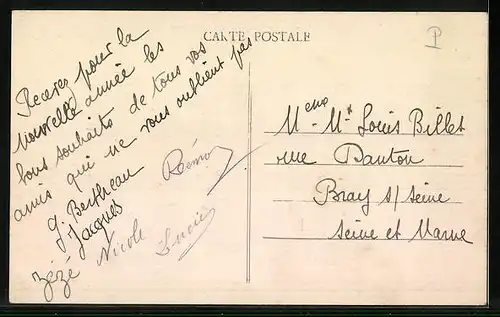 CARTE POSTALE
P
Recevez pour la
nouvelle année les
bons souhaits de tous vos
amis qui ne vous oublient pas
J. Bertheau
Jacques
Zézé Nicole Lucie
Rémon
Mme Mr Louis Billet
rue Danton
Bray s/ Seine
Seine et Marne